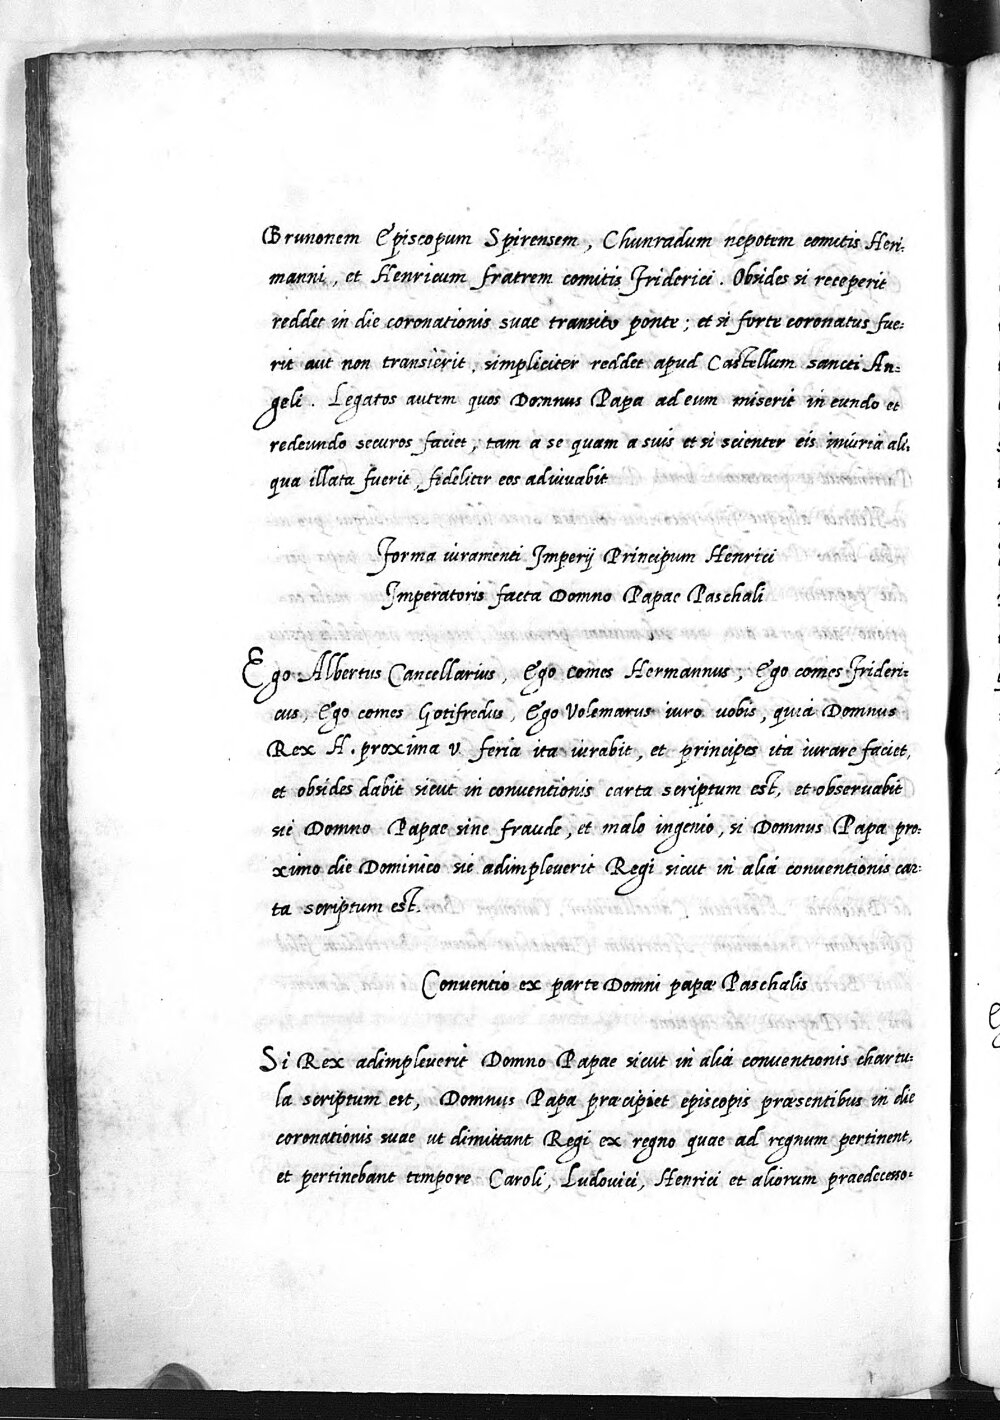 Brunonem Episcopum Spirensem, Chunradum nepotem comitis Heri-
manni, et Henricum fratrem comitis Friderici. Obsides si receperit
reddet in die coronationis suae transito ponte; et si forte coronatus fue-
rit aut non transierit, simpliciter reddet apud Castellum sancti An-
geli. Legatos autem quos Domnus Papa ad eum miserit in eundo et
redeundo securos faciet, tam a se quam a suis et si scienter eis iniuria ali-
qua illata fuerit, fideliter eos adiuvabit
Forma iuramenti Imperij Principum Henrici
Imperatoris facta Domno Papae Paschali
Ego Albertus Cancellarius, Ego comes Hermannus, Ego comes Frideri-
cus, Ego comes Gotifredus, Ego Volemarus iuro uobis, quia Domnus
Rex H. proxima v feria ita iurabit, et principes ita iurare faciet,
et obsides dabit sicut in conventionis carta scriptum est, et observabit
sic Domno Papae sine fraude, et malo ingenio, si Domnus Papa pro-
ximo die Dominico sic adimpleverit Regi sicut in aliá conventionis car-
ta scriptum est.
Conventio ex parte Domni papæ Paschalis
Si Rex adimpleverit Domno Papae sicut in aliá conventionis chartu-
la scriptum est, Domnus Papa præcipiet episcopis præsentibus in die
coronationis suae ut dimittant Regi ex regno quae ad regnum pertinent,
et pertinebant tempore Caroli, Ludovici, Henrici et aliorum praedecesso-